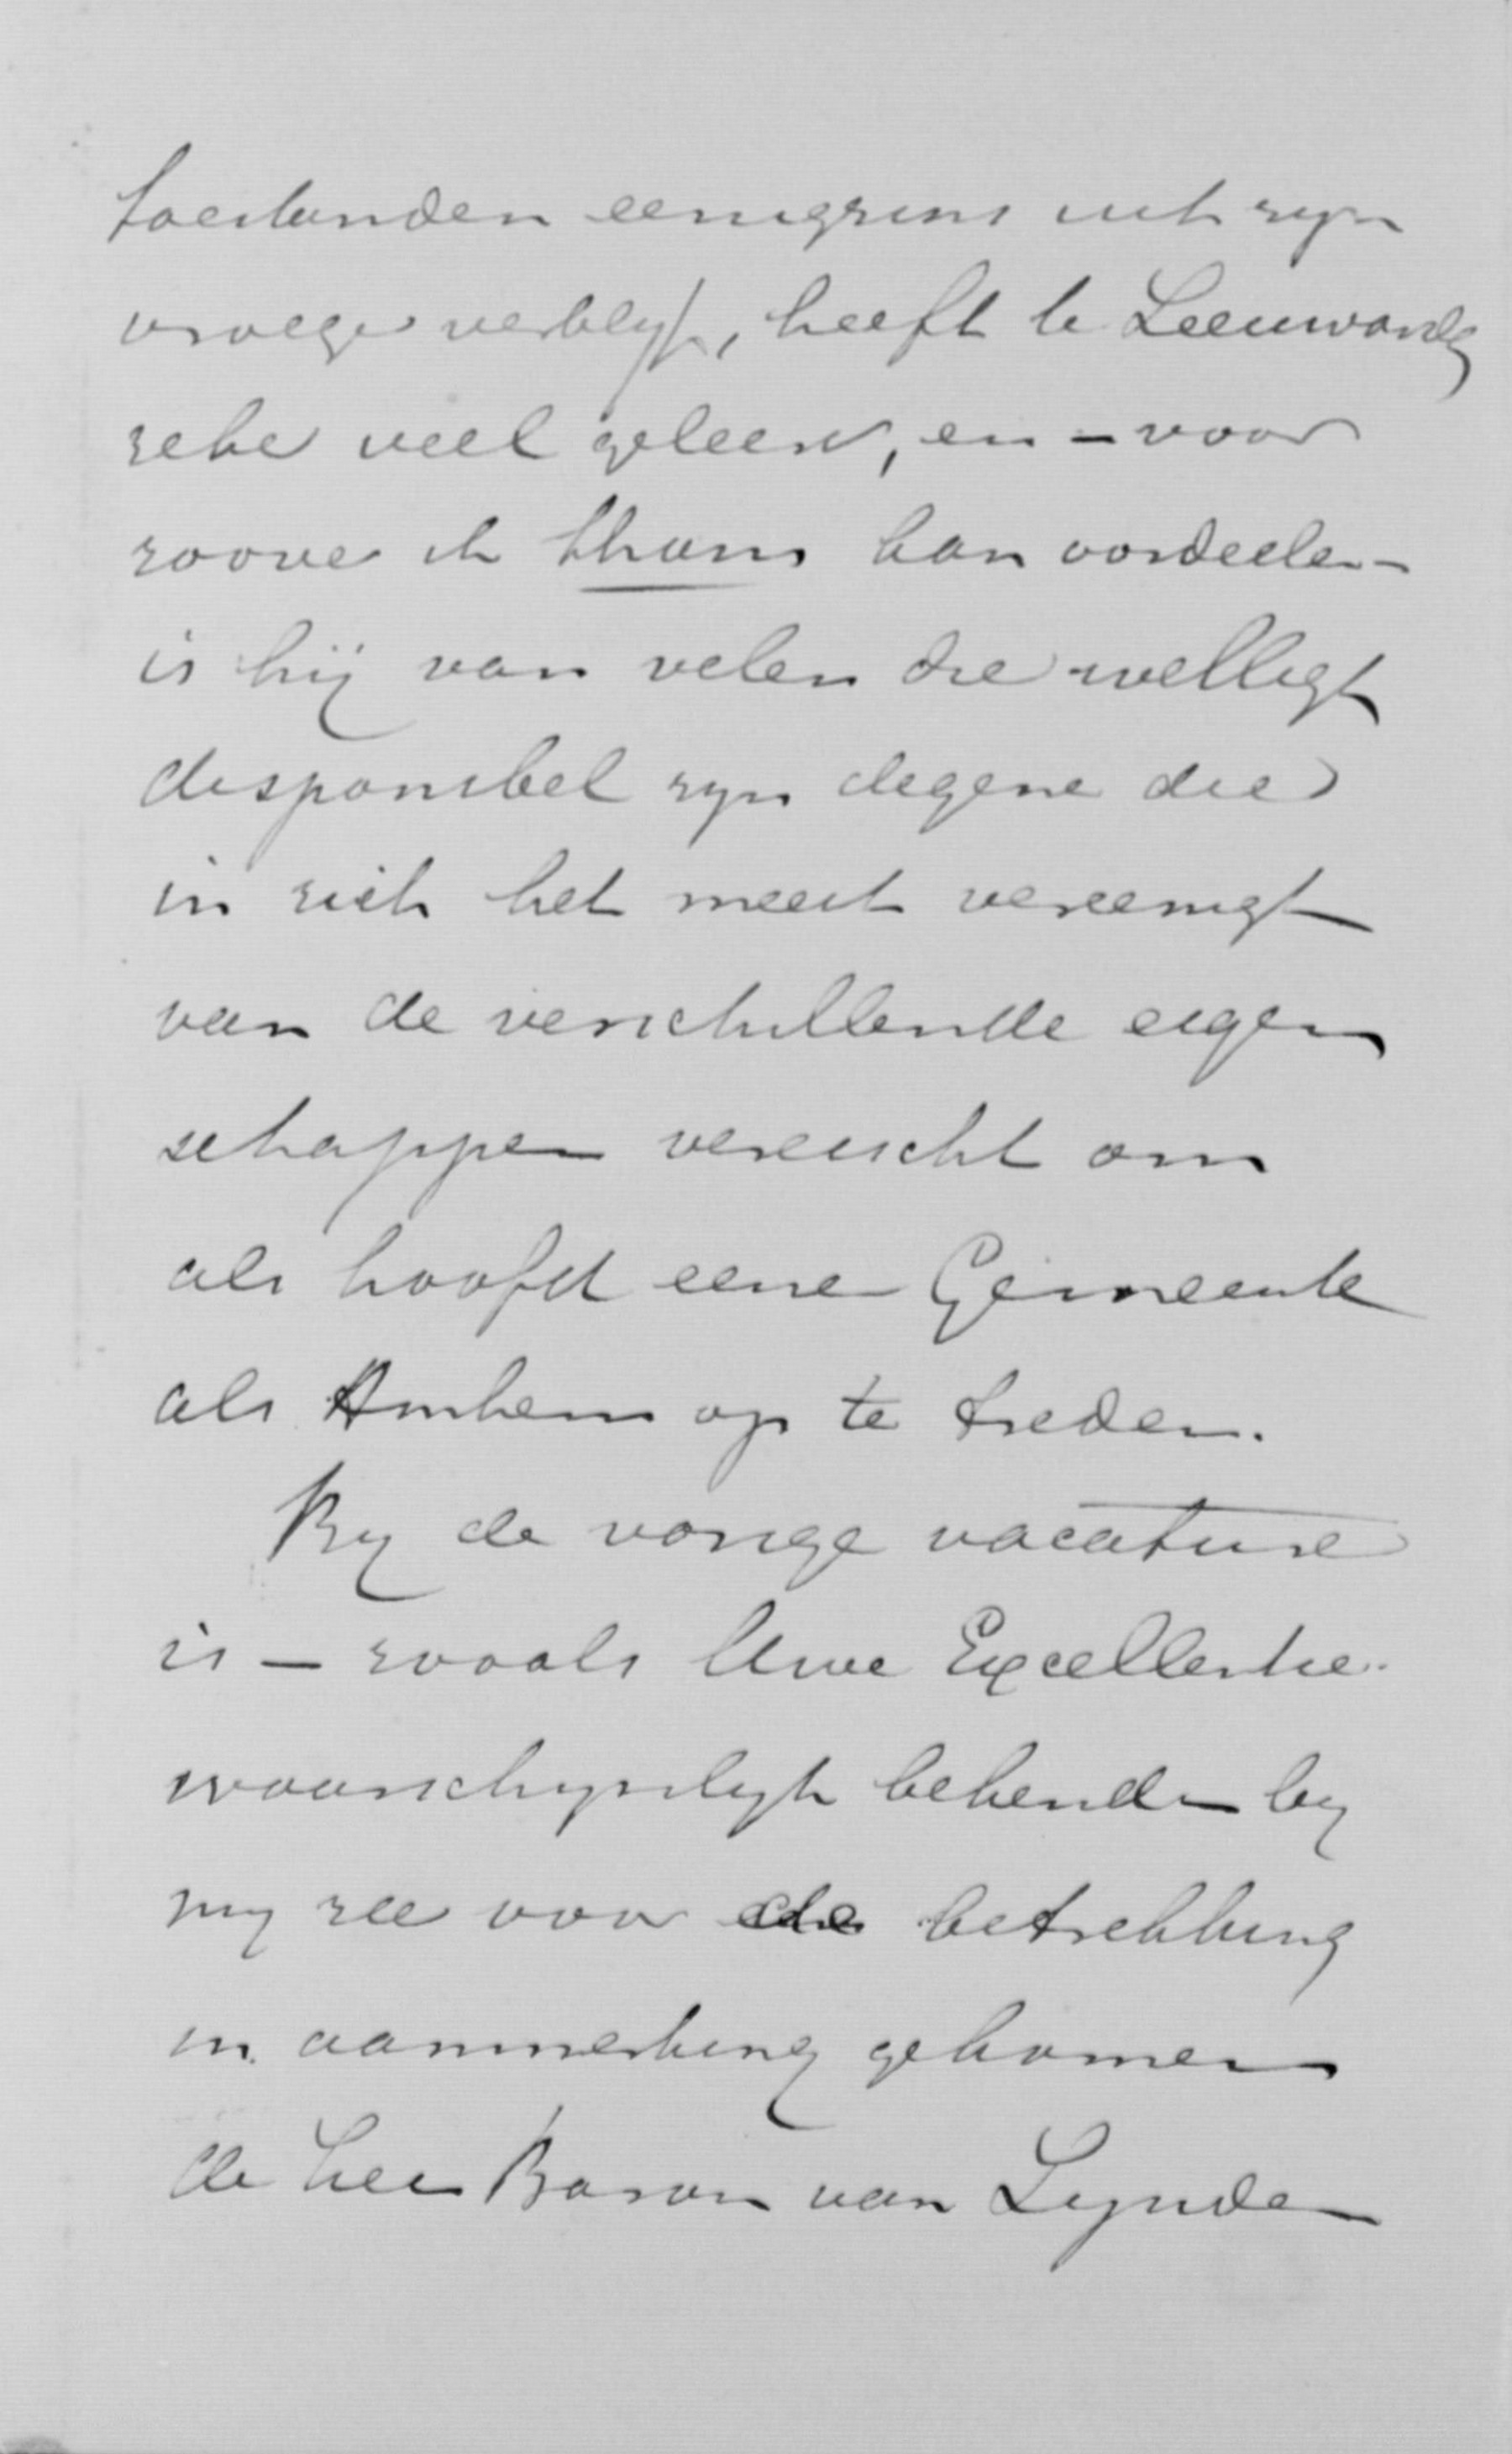 toestanden eenigzins uit zijn
vroeger verblijf, heeft te Leeuwarden
zeker veel geleerd, en – voor
zoover ik thans kan oordeelen –
is hij van velen die welligt
disponibel zijn degene die
in zich het meest vereenigt
van de verschillende eigen
schappen vereischt om
als hoofd eener Gemeente
als Arnhem op te treden.
By de vorige vacature
is – zooals Uwe Excellentie
waarschynlyk bekend – by
my zee voor de betrekking
in aanmerking gekomen
de heer Baron van Lynden